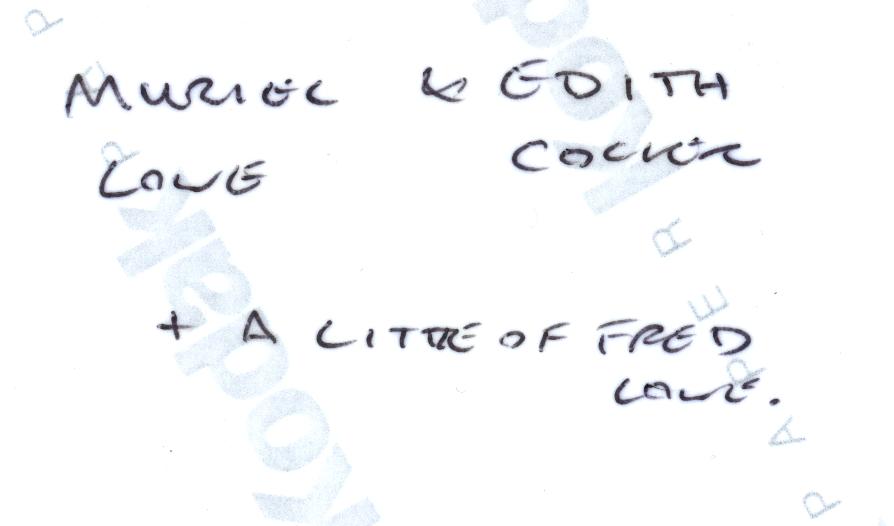 MURIEL & EDITH
LOWE COCKER
+ A LITTLE OF FRED
LOWE.
Kodak
PAPER